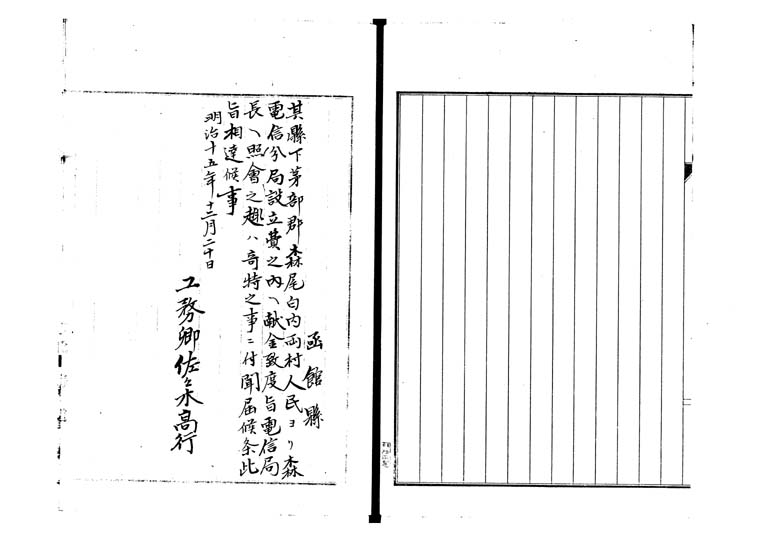 函館縣
其縣下茅部郡森尾白内両村人民ヨリ森
電信分局設立費之内ヘ献金致度旨電信局
長ヘ照會之趣ハ奇特之事ニ付聞届候条此
旨相達候事
明治十五年十二月二十日
工務卿佐々木高行